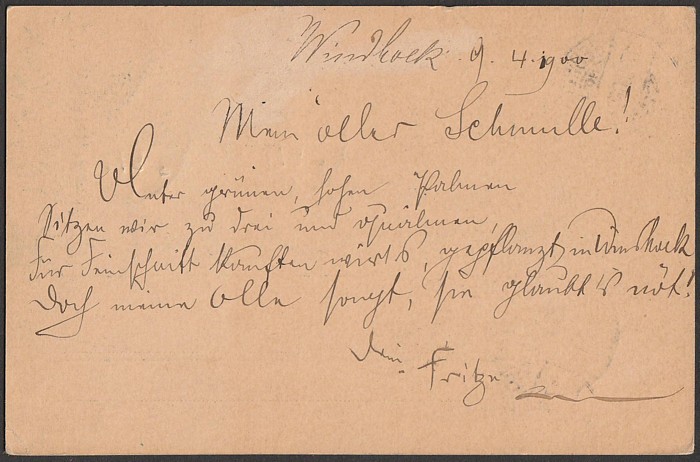 Windhoek 9. 4. 1900
Mein oller Schmulle!
Unter grünen, hohen Palmen
Sitzen wir zu drei und qualmen,
Für Feinschnitt kauften wirs, gepflanzt in Windhoek
Doch meine Olle sagt, sie glaubt's nöt!
Dein Fritze.